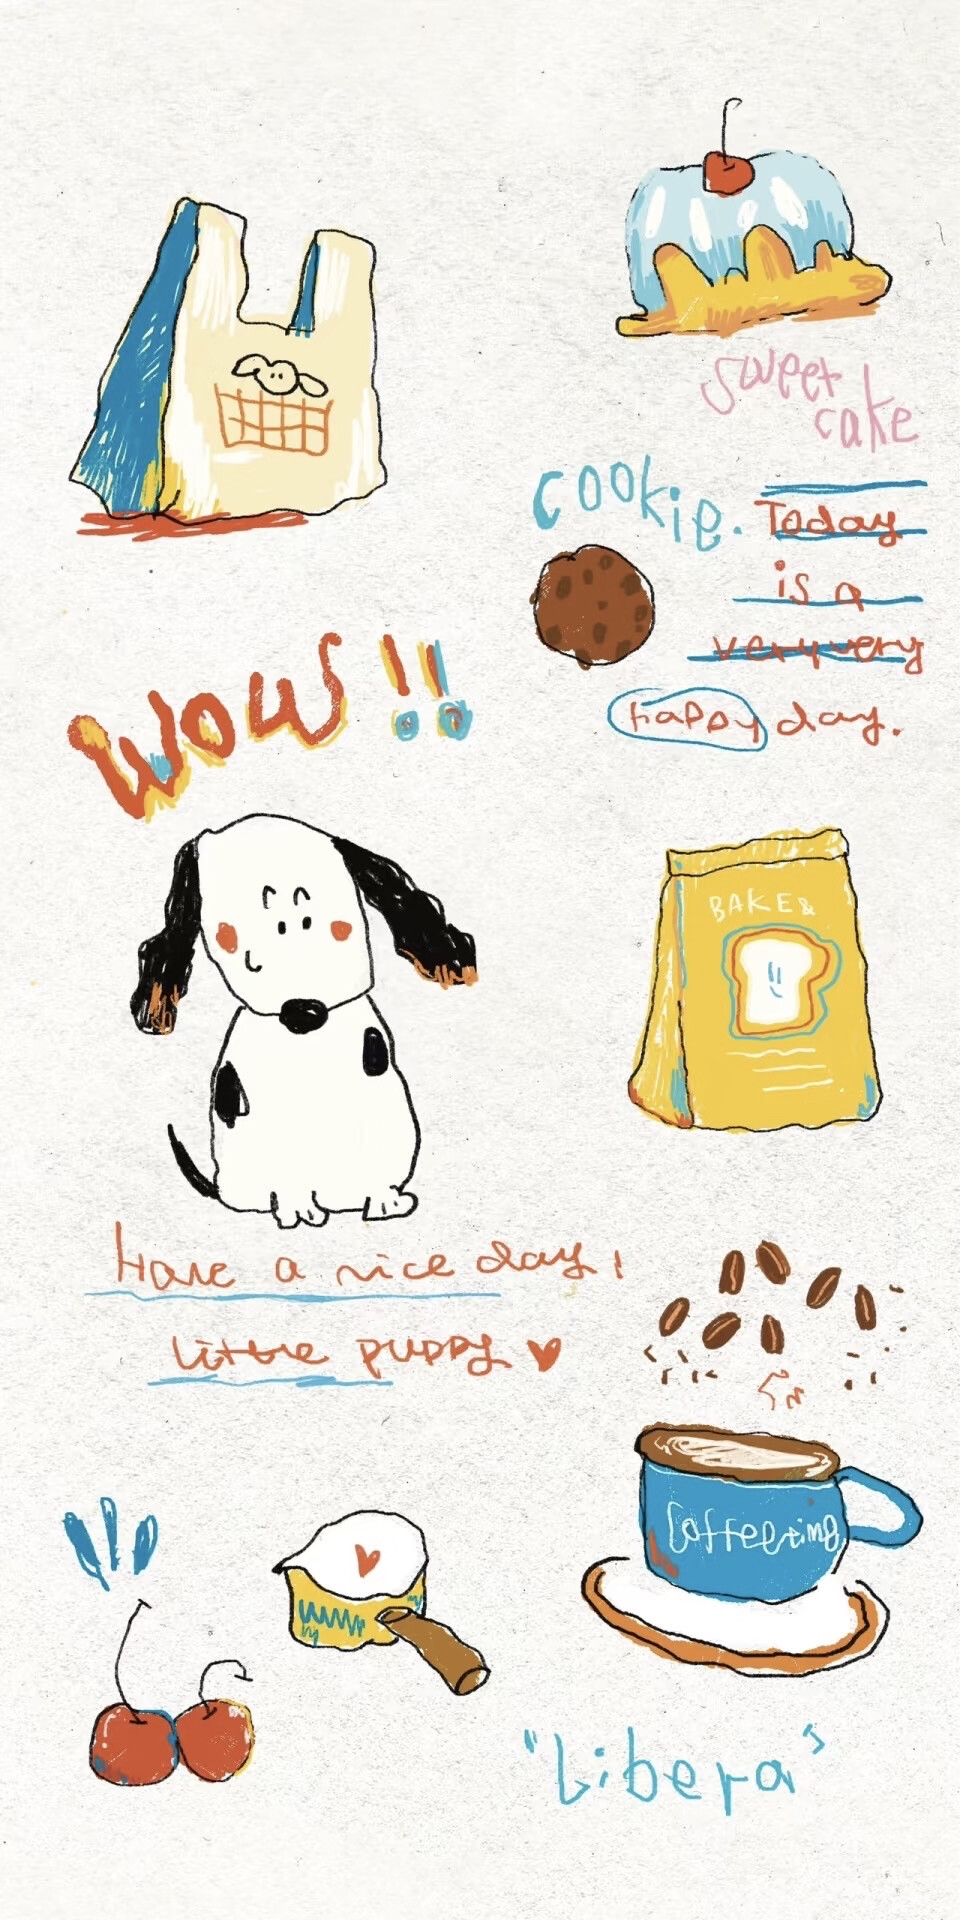 sweet
cake
cookie.
Today
is a
very very
happy day.
WOW!!
BAKE&
Have a nice day!
little puppy
Coffeetime
"Libera"